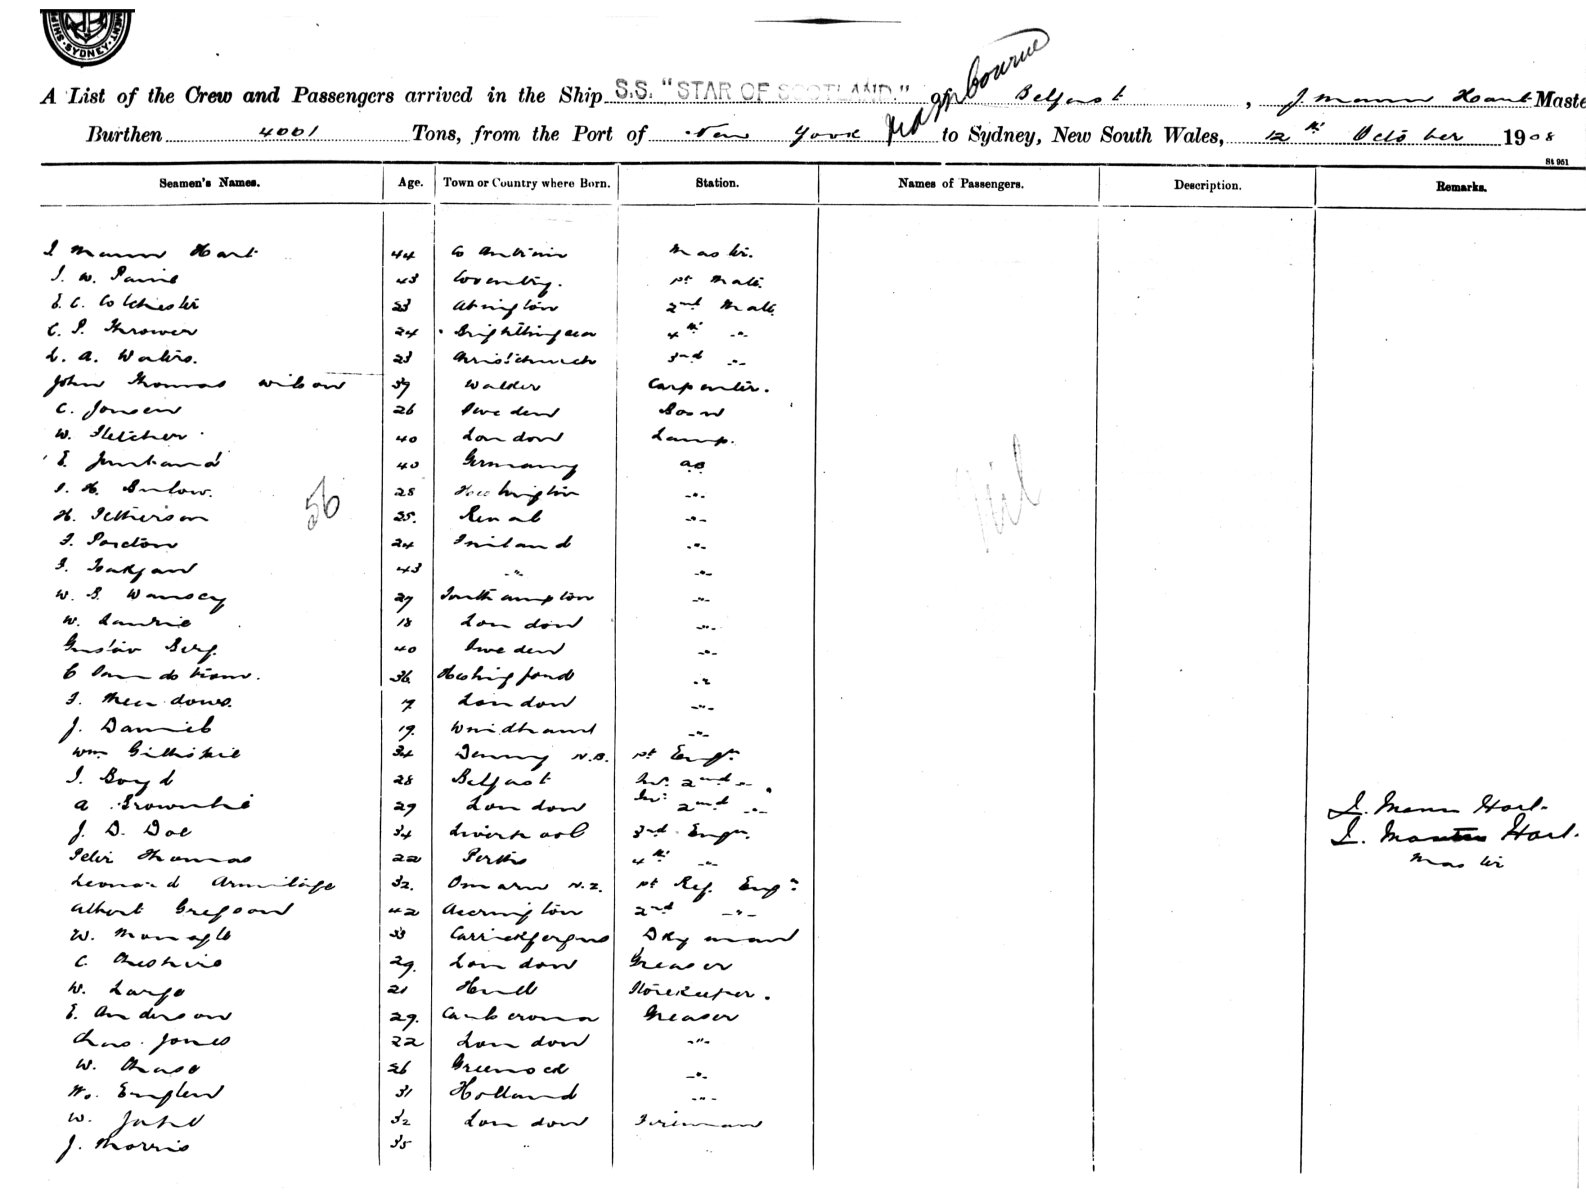 SYDNEY
A List of the Crew and Passengers arrived in the Ship S.S. "STAR OF SCOTLAND" of Belfast, J. Mann Hart Maste
Burthen 4001 Tons, from the Port of New York Melbourne to Sydney, New South Wales, 12th October 1908
St 961
Seamen's Names. Age. Town or Country where Born. Station. Names of Passengers. Description. Remarks.
I Mann Hart 44 Co Antrim Master.
43 Coventry. 1st Mate.
E. C. Colchester 23 Abington 2nd Mate
C. P. Thrower 24 Brightlingsea 4th -"-
L. A. Waters. 23 Christchurch 3rd -"-
John Thomas Wilson 39 Walker Carpenter.
C. Jonsen 26 Sweden Bosn
W. Fletcher 40 London Lamp.
E. 40 Germany AB
28 -"-
H. 25. -"-
56
Nil
24 Finland -"-
43 -"- -"-
W. S. Wansey 27 Southampton -"-
W. Laurie 18 London -"-
Gustav Berg. 40 Sweden -"-
36 -"-
F. Meadows. 17 London -"-
J. Daniels 19. -"-
Wm Gillespie 34 Denny N.B. 1st Engr.
J. Boyd 28 Belfast 2nd -"-
A Brownlie 29 London 2nd -"-
I. Mann Hart.
J. D. Doe 34 Liverpool 3rd Engr.
I. Mann Hart.
Peter Thomas 22 Perth 4th -"-
Master
Leonard Armitage 32. Omaru N.Z. 1st Ref. Engr
Albert Gregson 42 Accrington 2nd -"-
W. Monagle 33 Carrickfergus Dkyman
C. Cheshire 29. London Greaser
W. Large 21 Hull Storekeeper.
E. Anderson 29. Greaser
Chas. Jones 22 London -"-
W. Chase 26 Greenock -"-
31 Holland -"-
W. 32 London Fireman
J. Morris 35 "